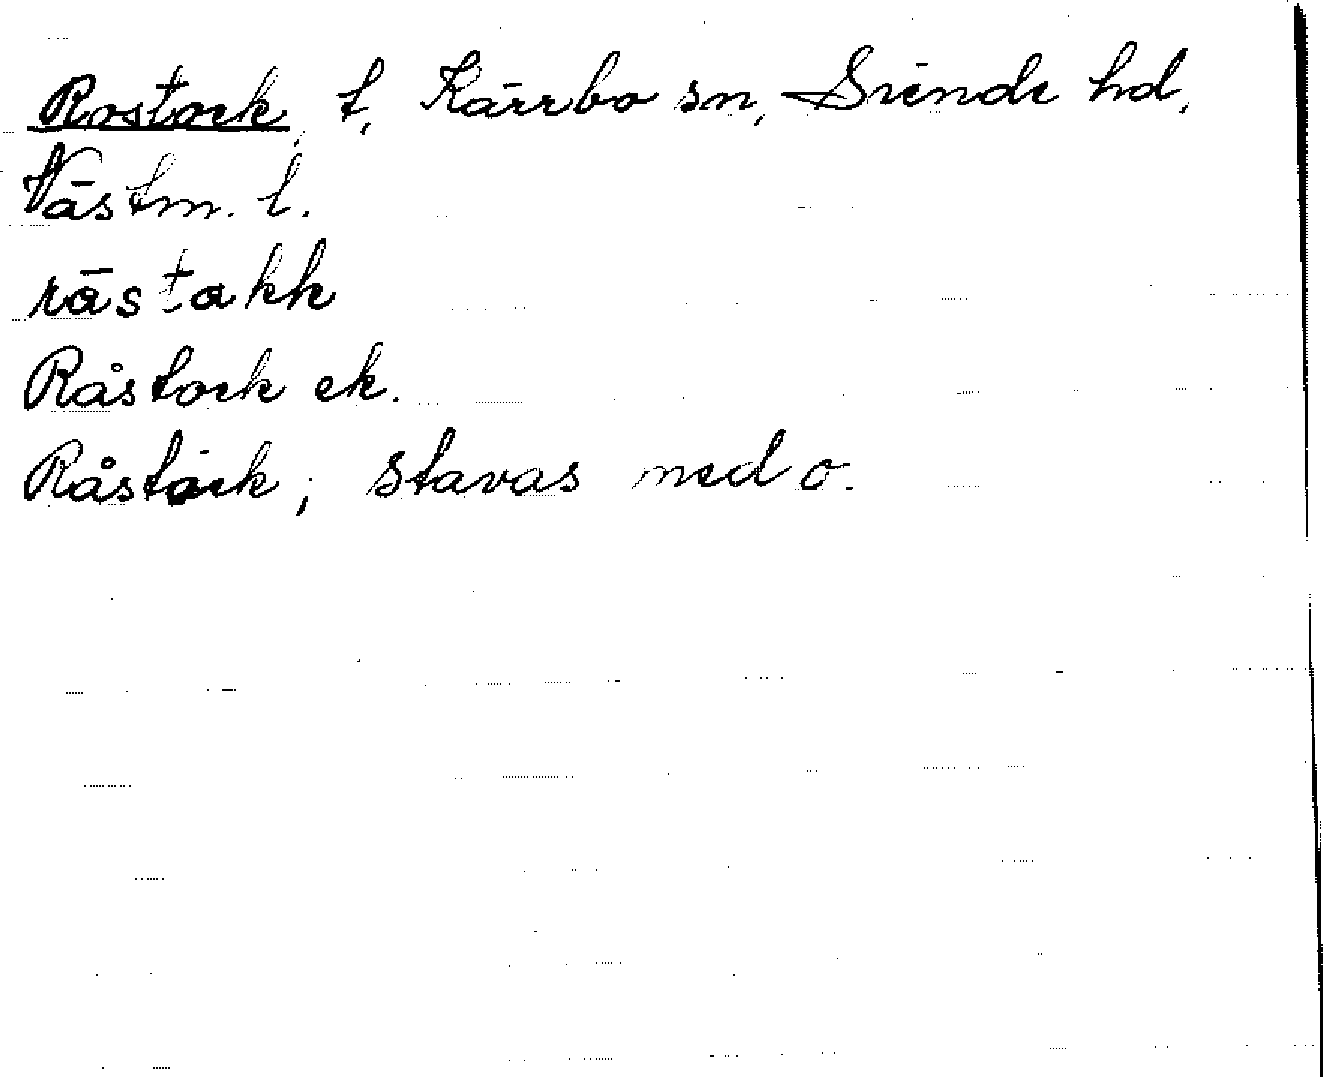 Rostock, t, Kärrbo sn, Siende hd,
Västm. l.
råstakk
Råstock ek.
Råstock; stavas med o.